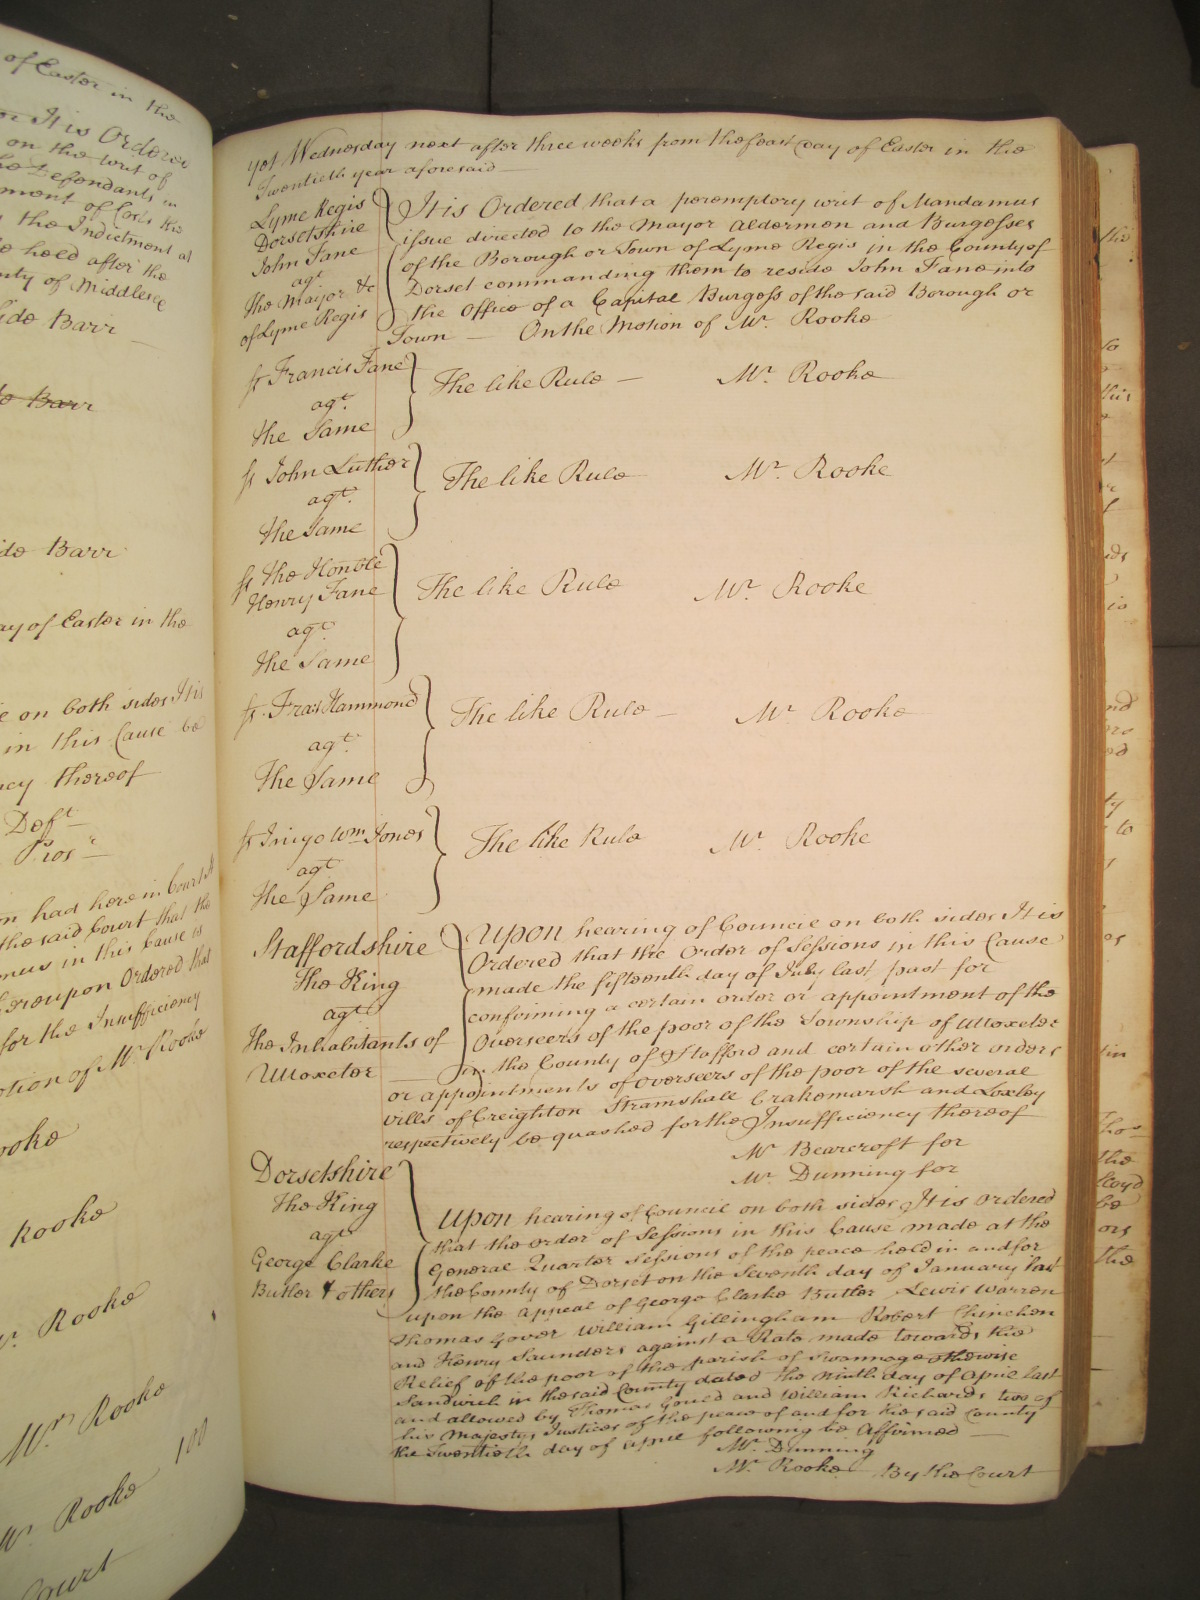 of Easter in the
It is Ordered
on the writ of
the Defendants in
ment of Costs the
the Indictment at
be held after the
nty of Middlesex
ide Barr
de Barr
ide Barr
ay of Easter in the
on both sides It is
in this Cause be
ncy thereof
Deft
Pros
had here in Court It
the said Court that the
mus in this Cause is
hereupon Ordered that
for the Insufficiency
otion of Mr. Rooke
ooke
Rooke
Mr. Rooke
Mr. Rooke
100
Mr. Rooke
Court
yet Wednesday next after three weeks from the feast day of Easter in the
Twentieth year aforesaid
Lyme Regis
Dorsetshire
John Fane
agt
the Maijor &c
of Lyme Regis
It is Ordered that a peremptory writ of Mandamus
issue directed to the Mayor Aldermen and Burgesses
of the Borough or Town of Lyme Regis in the County of
Dorset commanding them to restore John Fane into
the Office of a Capital Burgess of the said Borough or
Town — On the Motion of Mr. Rooke
fr Francis Fane
agt.
the Same
The like Rule — Mr. Rooke
fr John Luther
agt.
the Same
The like Rule Mr. Rooke
fr the Honble
Henry Fane
agt.
the Same
The like Rule Mr. Rooke
fr Fras Hammond
agt.
The Same
The like Rule — Mr. Rooke
fr Inigo Wm Jones
agt
the Same
The like Rule Mr. Rooke
Staffordshire
The King
agt
the Inhabitants of
Uttoxeter
Upon hearing of Council on both sides It is
Ordered that the Order of Sessions in this Cause
made the fifteenth day of July last past for
confirming a certain order or appointment of the
Overseers of the poor of the Township of Uttoxeter
in the County of Stafford and certain other orders
or appointments of overseers of the poor of the several
vills of Creighton Stramshall Crakemarsh and Loxley
respectively be quashed for the Insufficiency thereof
Mr Bearcroft for
Mr. Dunning for
Dorsetshire
The King
agt
George Clarke
Butler & others
Upon hearing of Council on both sides It is ordered
that the order of Sessions in this Cause made at the
General Quarter Sessions of the peace held in and for
the County of Dorset on the Seventh day of January last
upon the Appeal of George Clarke Butler Lewis Warren
Thomas Gover William Gillingham Robert Chinchen
and Henry Saunders against a Rate made towards the
Relief of the poor of the parish of Swannage otherwise
Sandwich in the said County dated the ninth day of April last
and allowed by Thomas Gould and William Richards two of
his Majestys Justices of the peace of and for the said County
the Twentieth day of April following be Affirmed —
Mr. Dunning
Mr. Rooke By the Court